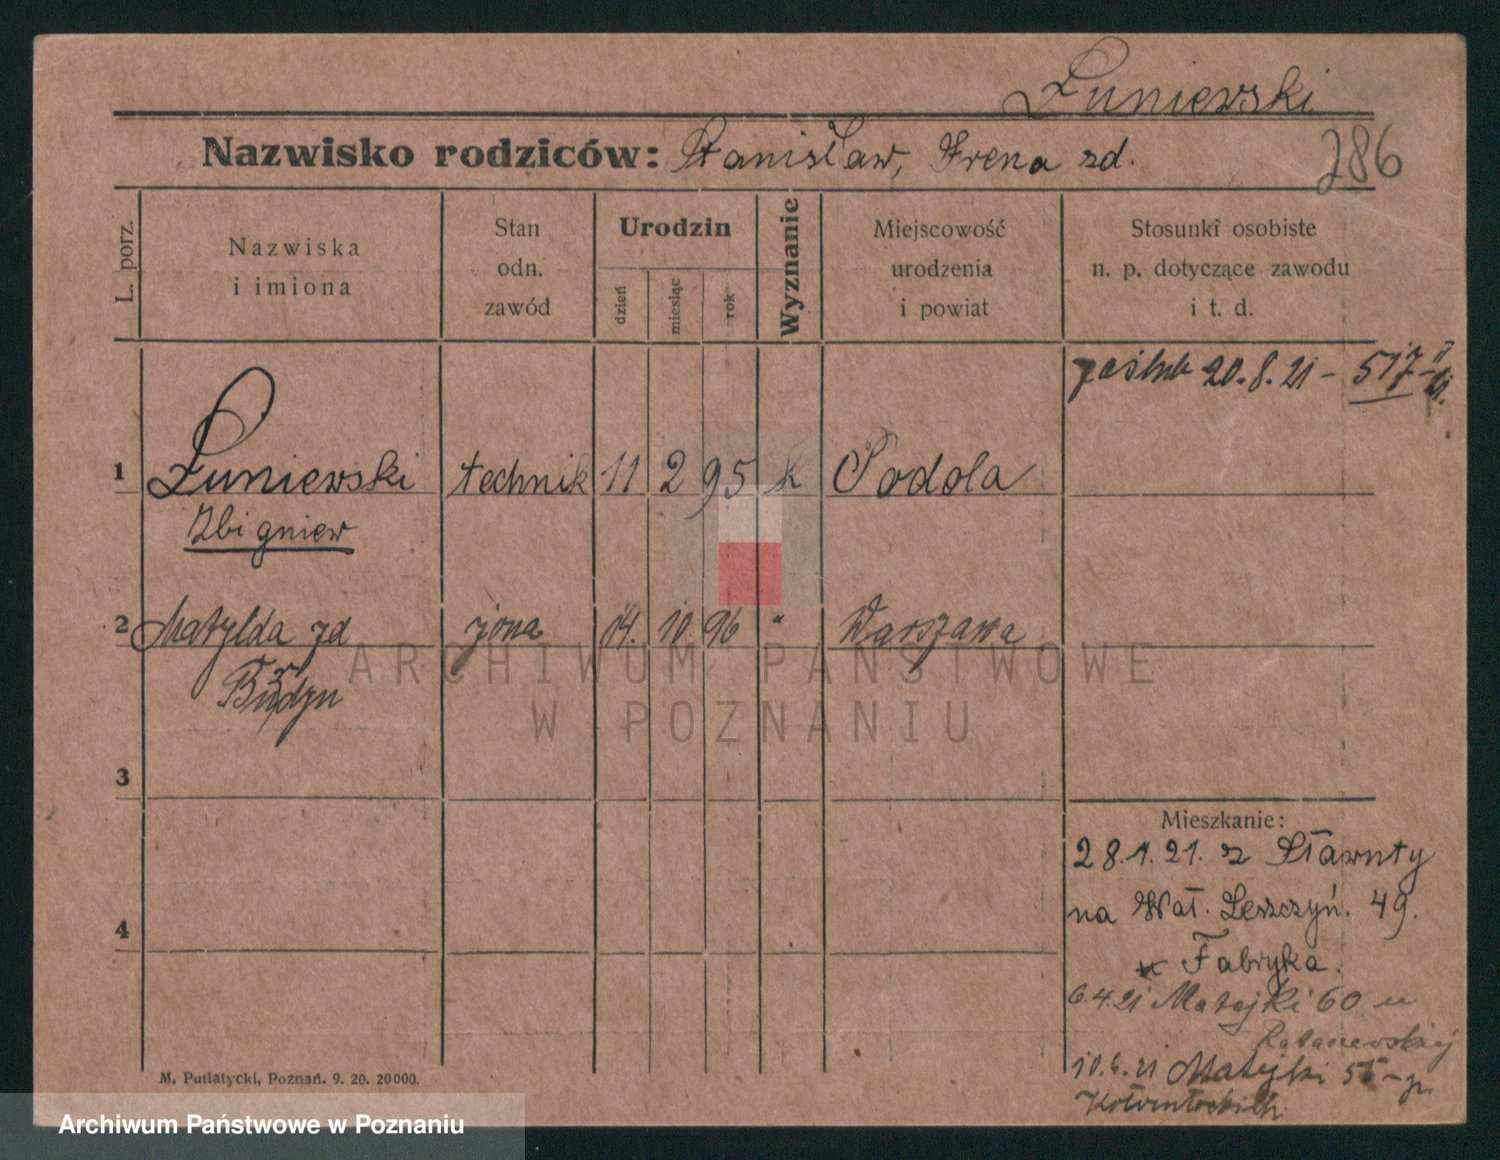 Łuniewski
Nazwisko rodziców: Stanisław, Irena zd.
286
L. porz.
Nazwiska
i imiona
Stan
odn.
zawód
Urodzin
dzień
miesiąc
rok
Wyznanie
Miejscowość
urodzenia
i powiat
Stosunki osobiste
n. p. dotyczące zawodu
i t. d.
20.8.21 – 517
1 Łuniewski technik 11 2 95 k Podola
Zbigniew
2 Matylda zd żona 14. 10 96 " Warszawa
3
4
Mieszkanie:
28.1.21. z Sławuty
na Wał. Leszczyń. 49.
Fabryka.
6.4.21 Matejki 60 u
10.6.21 Matejki
M. Putiatycki, Poznań. 9. 20. 20000.
ARCHIWUM PAŃSTWOWE
W POZNANIU
Archiwum Państwowe w Poznaniu